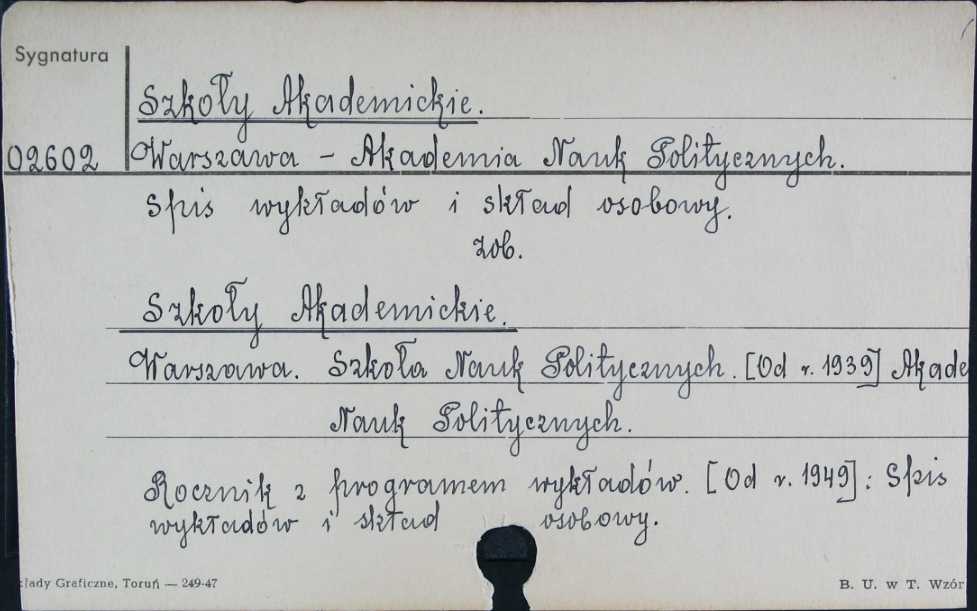 Sygnatura
Szkoły Akademickie.
02602 Warszawa – Akademia Nauk Politycznych.
Spis wykładów i skład osobowy.
zob.
Szkoły Akademickie.
Warszawa. Szkoła Nauk Politycznych. [Od r. 1939] Akade
Nauk Politycznych.
Rocznik z programem wykładów. [Od r. 1949]: Spis
wykładów i skład osobowy.
kłady Graficzne, Toruń — 249-47 B. U. w T. Wzór